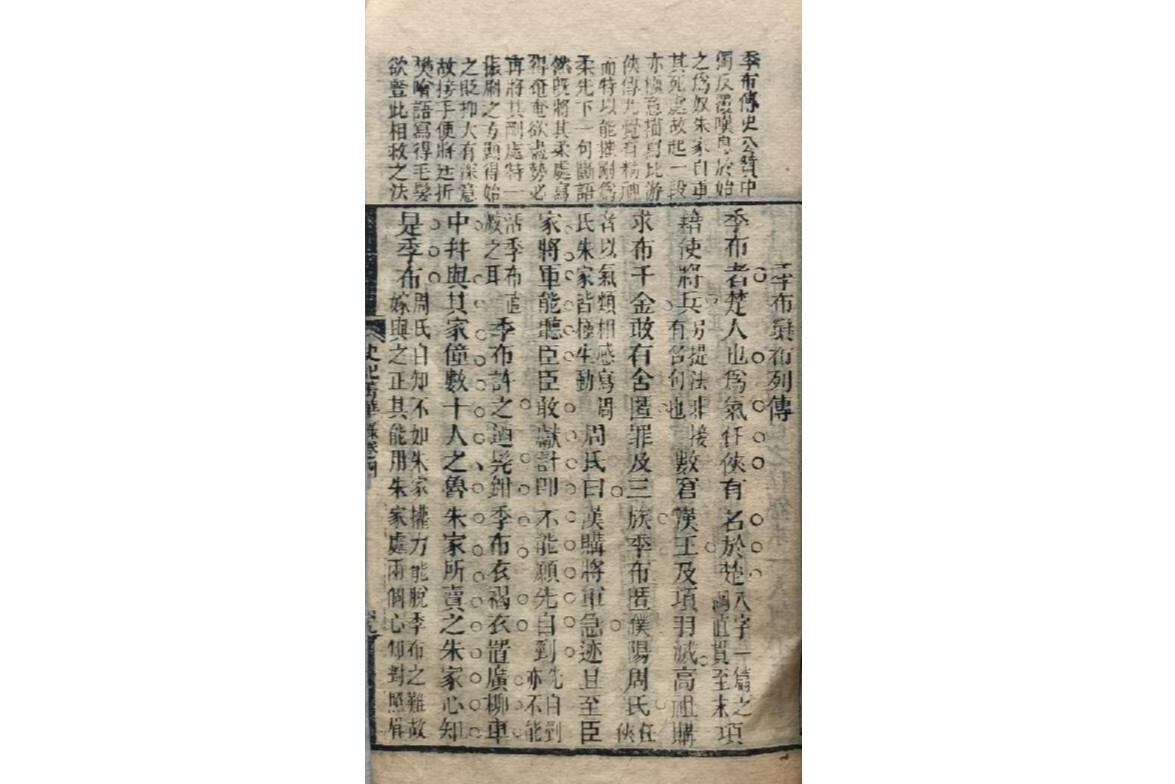 季布傳史公贊中
獨反覆嘆息於始
之爲奴朱家自重
其死處故起一段
亦極意描寫比游
俠傳尤覺有精神
而特以能摧剛爲
柔先下一句斷語
然既將其柔處寫
得奄奄欲盡勢必
再將其剛處特一
振刷之方顯得始
之貶抑大有深意
故接手便將廷折
樊噲語寫得毛髮
欲豎此相救之法
季布欒布列傳
季布者楚人也爲氣任俠有名於楚八字一篇之綱直貫至末項
籍使將兵另提法非接有名句也數窘漢王及項羽滅高祖購
求布千金敢有舍匿罪及三族季布匿濮陽周氏任俠
者以氣類相感寫周氏朱家皆極生動周氏曰漢購將軍急迹且至臣
家將軍能聽臣臣敢獻計即不能願先自剄先自剄亦不能
活季布直激之耳季布許之迺髡鉗季布衣褐衣置廣柳車
中幷與其家僮數十人之魯朱家所賣之朱家心知
是季布周氏自知不如朱家權力能脫季布之難故嫁與之正其能用朱家處兩個心仰對照眉
史記菁華錄卷四